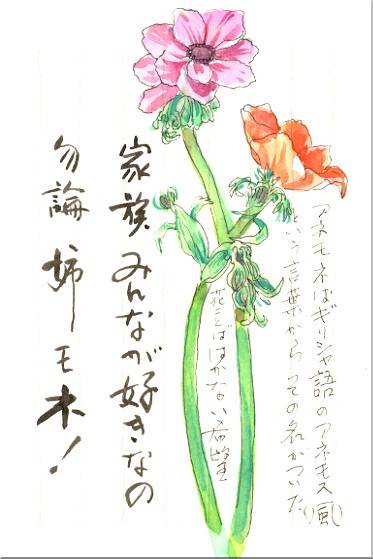 アネモネはギリシャ語のアネモス(風)
という言葉からその名がついた
花ことばははかない希望
家族みんなが好きなの
勿論姉モ木!